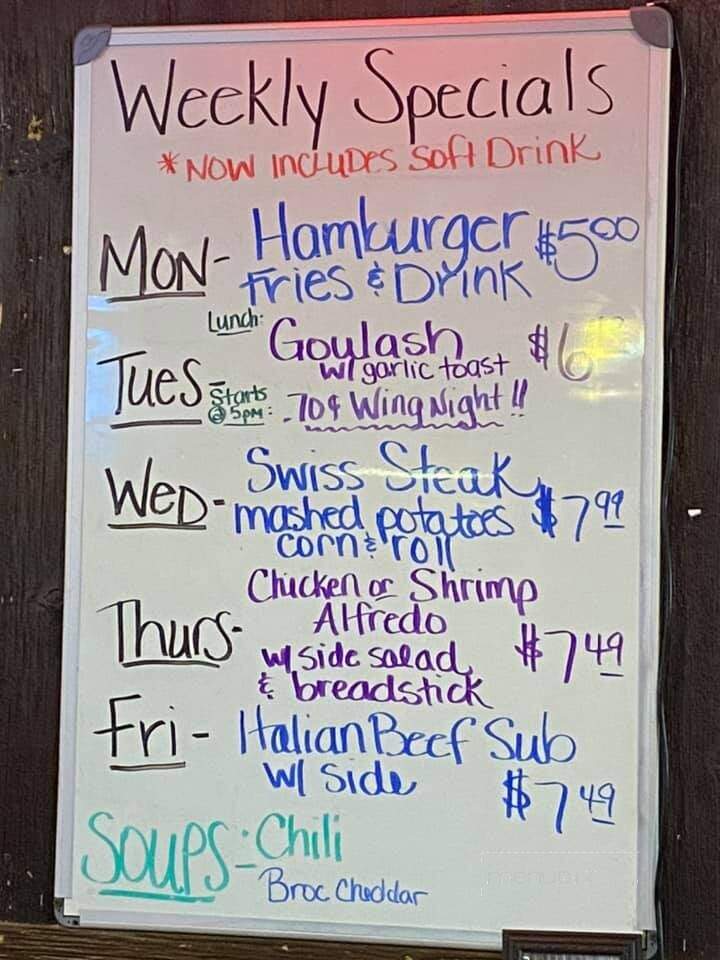 Weekly Specials
*NOW INCLUDES Soft Drink
MON- Hamburger $5.00
Fries & Drink
Lunch: Goulash $6
w/ garlic toast
Tues- Starts @ 5PM: .70¢ Wing Night!!
WED- Swiss Steak
mashed potatoes $7.99
corn & roll
Chicken or Shrimp
Thurs- Alfredo
w/ side salad $7.49
& breadstick
Fri- Italian Beef Sub
w/ Side $7.49
SOUPS: Chili
Broc Cheddar